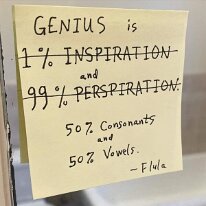 GENIUS is
1% INSPIRATION
and
99% PERSPIRATION.
50% Consonants
and
50% Vowels.
- Flula